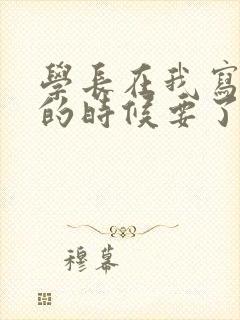 學長在我寫
的時候要了
穆幕